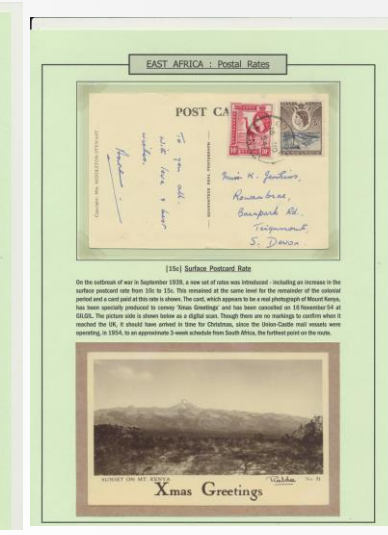 EAST AFRICA : Postal Rates
POST CA
To you all
with love & best
wishes.
Miss K. Jenkins,
Rowanbrae,
Barnpark Rd.
Teignmouth,
S. Devon.
[15c] Surface Postcard Rate
On the outbreak of war in September 1939, a new set of rates was introduced - including an increase in the
surface postcard rate from 10c to 15c. This remained at the same level for the remainder of the colonial
period and a card paid at this rate is shown. The card, which appears to be a real photograph of Mount Kenya,
has been specially produced to convey 'Xmas Greetings' and has been cancelled on 16 November 54 at
GILGIL. The picture side is shown below as a digital scan. Though there are no markings to confirm when it
reached the UK, it should have arrived in time for Christmas, since the Union-Castle mail vessels were
operating, in 1954, to an approximate 3-week schedule from South Africa, the furthest point on the route.
SUNSET ON MT. KENYA
No. 51
Xmas Greetings